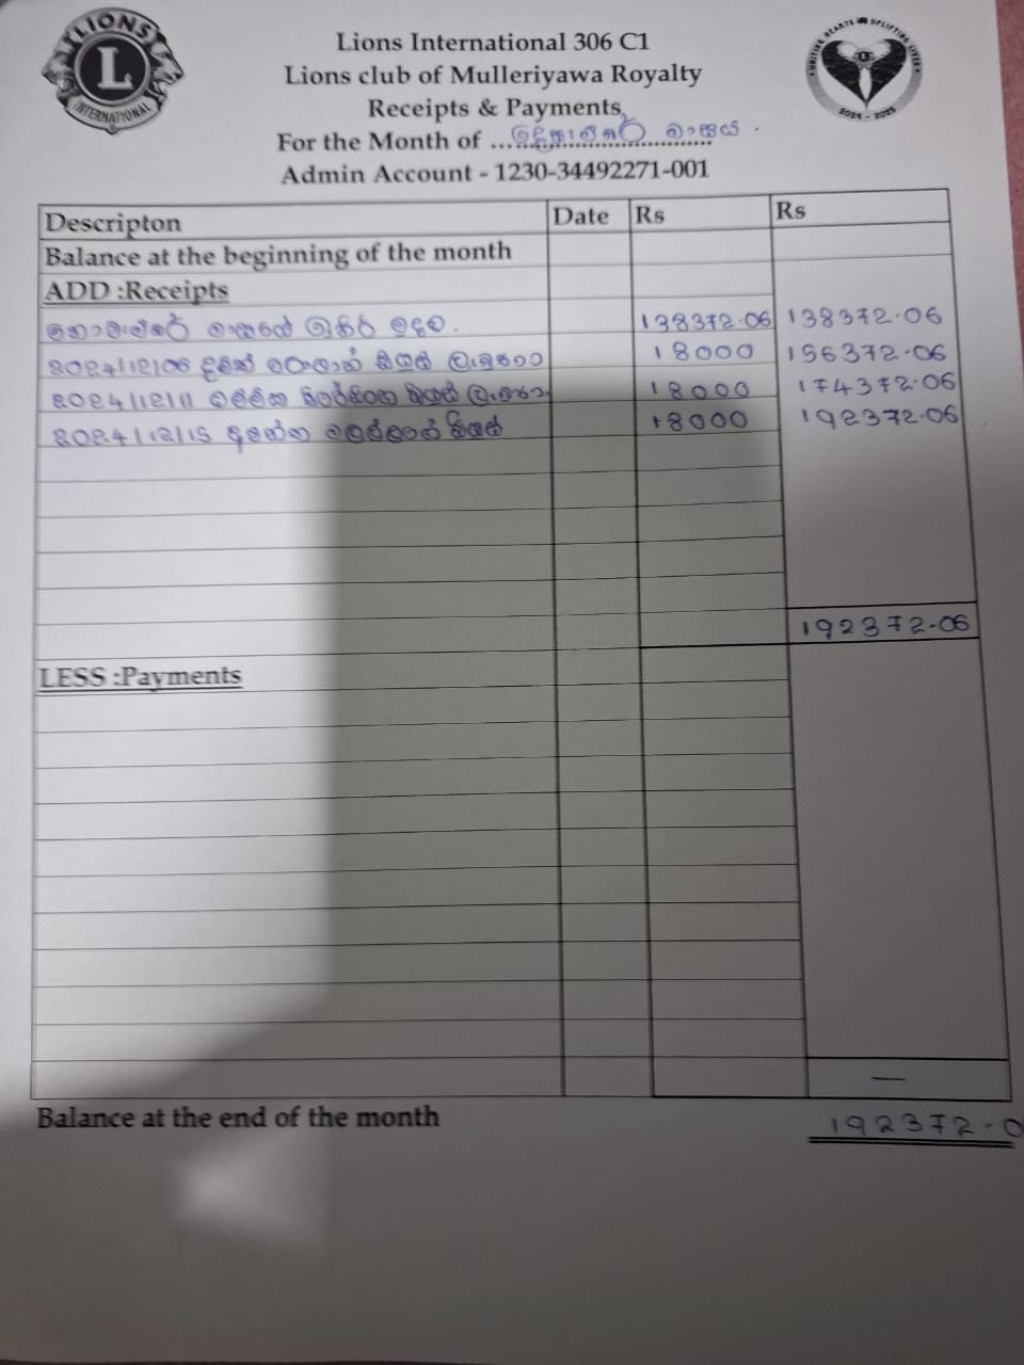 LIONS
L
INTERNATIONAL
UNITING HEARTS UPLIFTING LIVES
2024 - 2025
Lions International 306 C1
Lions club of Mulleriyawa Royalty
Receipts & Payments
For the Month of ... දෙසැම්බර් මාසය .
Admin Account - 1230-34492271-001
Descripton Date Rs Rs
Balance at the beginning of the month
ADD :Receipts
නොවැම්බර් මාසයේ ඉතිරි මුදල . 138372.06 138372.06
2024/12/06 ලයන් 18000 156372.06
2024/12/11 18000 174372.06
2024/12/15 18000 192372.06
192372.06
LESS :Payments
—
Balance at the end of the month 192372.0